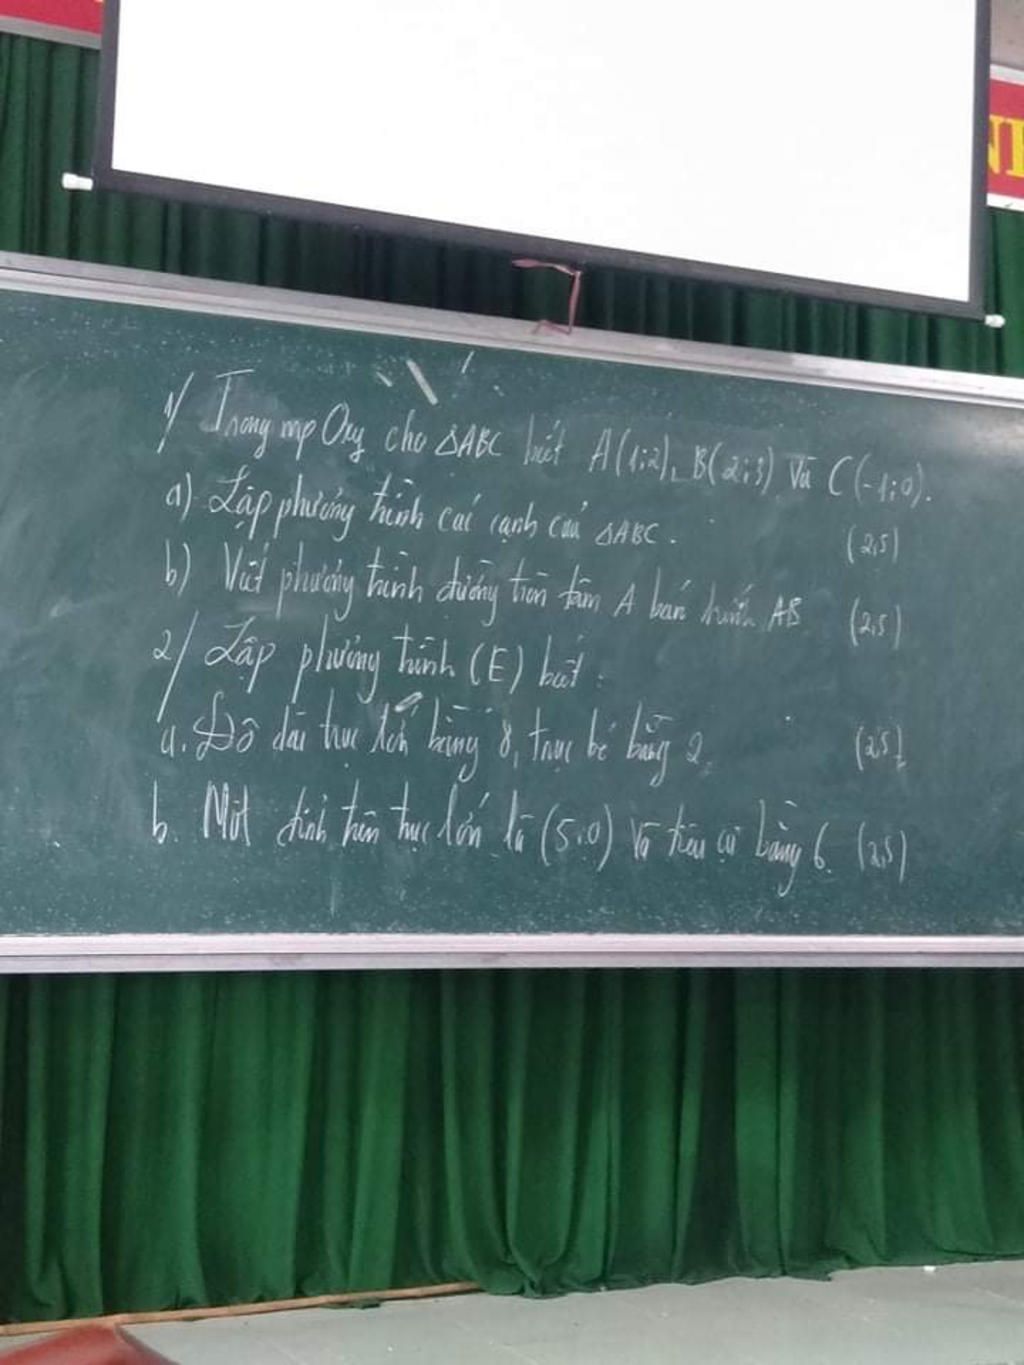 1/ Trong mp Oxy cho ΔABC biết A(1;2), B(2;3) và C(-1;0).
a) Lập phương trình các cạnh của ΔABC. (2,5)
b) Viết phương trình đường tròn tâm A bán kính AB (2,5)
2/ Lập phương trình (E) biết:
a. Độ dài trục lớn bằng 8, trục bé bằng 2. (2,5)
b. Một đỉnh trên trục lớn là (5;0) và tiêu cự bằng 6. (2,5)